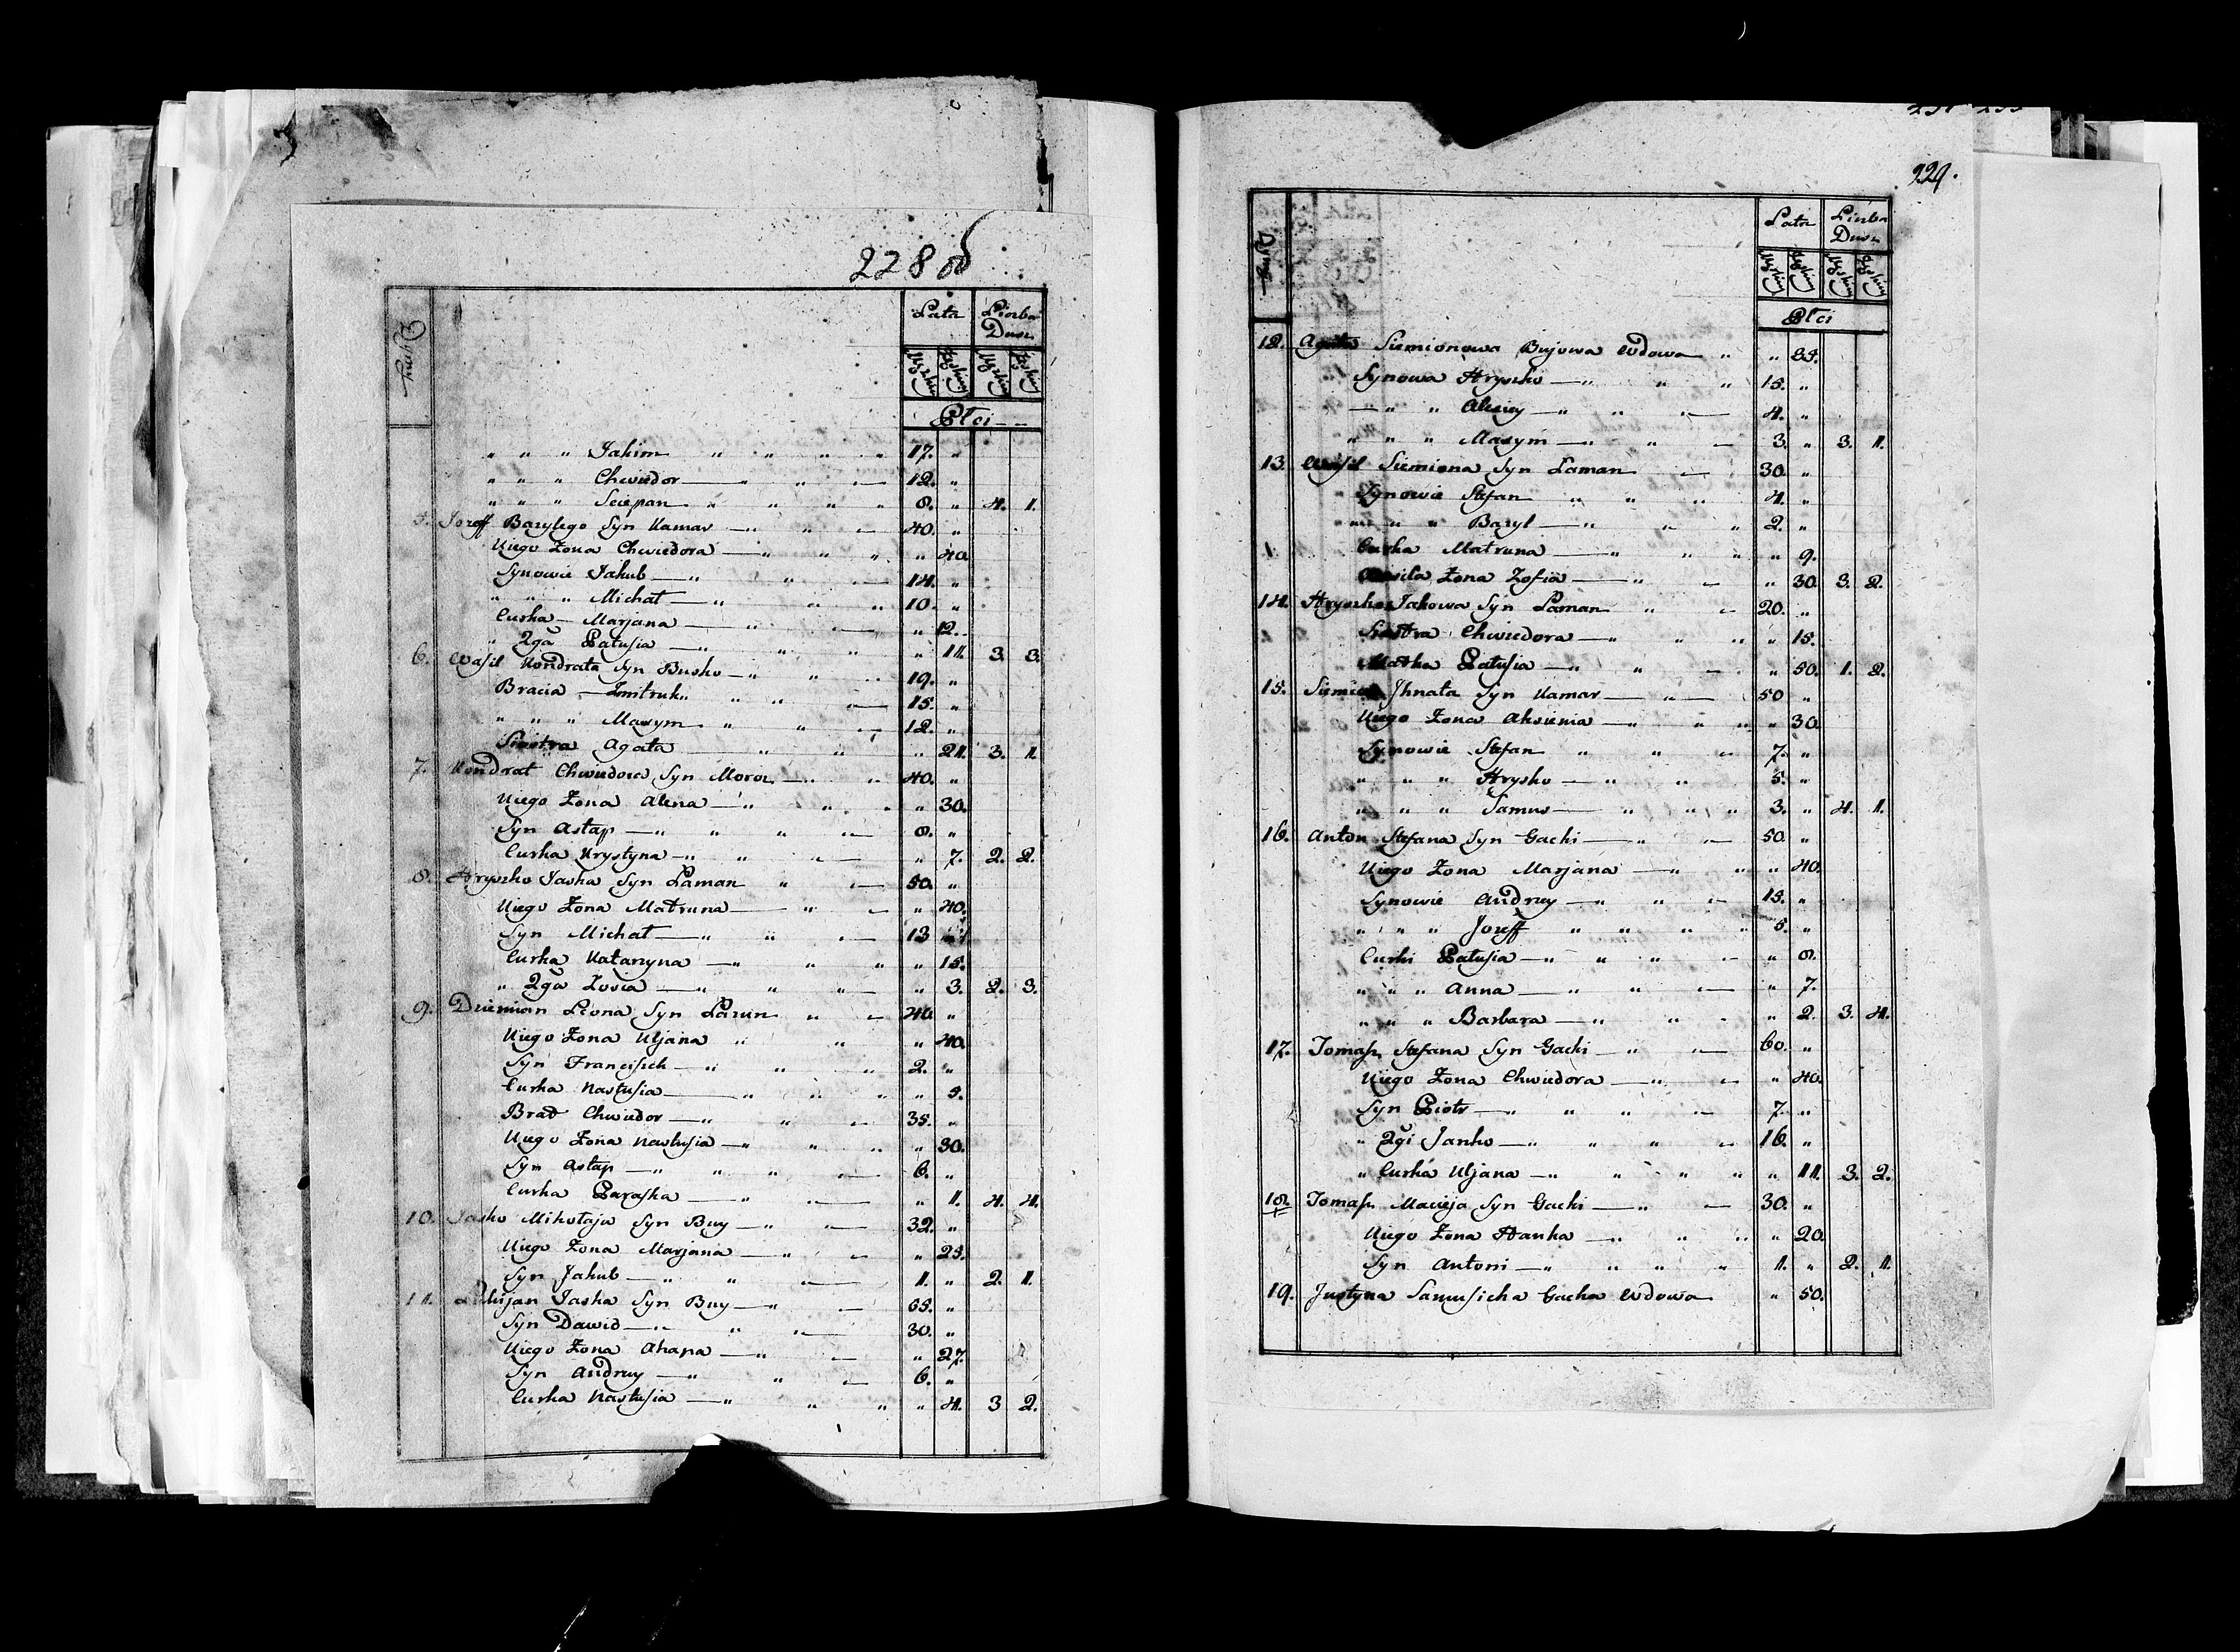 228 об
Dymy
Lata Liczba Dusz
Męzkiey Żeńskiey Męzkiey Żeńskiey
Płci
" " " Jakim " " " " 17. "
" " " Chwiedor — " " — 12. "
" " " Sciepan " " " " 8. " 4. 1.
5. Jozeff Bazylego Syn Kamar — " " — 40. "
Uiego Żona Chwiedora — " " " " 40.
Synowie Jakub — " " — 14. "
" " " Michał — " " " 10. "
Curka — Marjana — " — " 12.
" 2ga Patusia — " " " " 11. 3. 3.
6. Wasil Kondrata Syn Busko — " " " 19. "
Bracia — Zmitruk " " " — 15. "
" " " Maxym " " — 12. "
Siostra Agata — " " " 21. 3. 1.
7. Kondrat Chwiedora Syn Moroz — " " 40. "
Uiego Żona Alena — " " " " 30.
Syn Astap — " " " — 8. "
Curka Krystyna — " " — " 7. 2. 2.
8. Hryszko Jaska Syn Laman " — 50. "
Uiego Żona Matruna — " — " 40.
Syn Michał — " " — 13 "
Curka Katarzyna — " " " " 15.
" 2ga Zosia — " " — " 3. 2. 3.
9. Dziemian Leona Syn Lazun " — 40. "
Uiego Żona Uljana " " " 40.
Syn Francisiek — " " " 2. "
Curka Nastusia — " " " " 5.
Brat Chwiedor — " " — 35. "
Uiego Żona Nastusia — " " " " 30.
Syn Astap — " " " — 6. "
Curka Paraska — " — " 1. 4. 4.
10. Jasko Mikołaja Syn Buy — " — 32. "
Uiego Żona Marjana — " — " 25.
Syn Jakub — " " — 1. " 2. 1.
11. Jaska Syn Buy — " — 65. "
Syn Dawid — " " — 30. "
Uiego Żona Ahapa — " — " 27.
Syn Andrey — " " — 6. "
Curka Nastusia — " " " " 4. 3 2.
229.
Dymy
Lata Liczba Dusz
Męzkiey Żeńskiey Męzkiey Żeńskiey
Płci
12. Agata Siemionowa Bujowa Wdowa " "
Synowa Hryszko — " " 15. "
— " " Alexiey — " " — 4. "
" " " Maxym — " " — 3. " 3. 1.
13. Wasil Siemiona Syn Laman — 30. "
Synowie Stefan " " " 4. "
" " " Bazyl — " " " 2. "
Curka Matruna — " " " " 9.
Wasila Żona Zofia — " — " 30. 3. 2.
14. Hryszko Jakowa Syn Laman " — 20. "
Siostra Chwiedora — " " " " 15.
Matka Patusia — " " — " 50. 1. 2.
15. Siemion Jhnata Syn Kamar — " — 50 "
Uiego Żona Aksienia — " " " " 30.
Synowie Stefan " " — 7. "
" " " Hrysko — " " 5. "
" " " Samus — " " " 3. " 4. 1.
16. Anton Stefana Syn Gacki — " — 50. "
Uiego Żona Marjana — " " " 40.
Synowie Andrey — " " — 15. "
" " " Jozeff " " " " 5. "
Curki Patusia — " " " — " 8.
" " " Anna — " " — " 7.
" " " Barbara — " " - " 2. 3. 4.
17. Tomasz Stefana Syn Gacki — " — 60. "
Uiego Żona Chwiedora — " — " 40.
Syn Piotr — " " " — 7. "
" 2gi Janko — " " " — 16. "
" Curka Uljana — " " " " " 11. 3. 2.
18. Tomasz Macieja Syn Gacki — " — 30. "
Uiego Żona Hanka — " " " " 20.
Syn Antoni — " " " " 1. " 2. 1.
19. Justyna Samusicha Gacka Wdowa " 50.